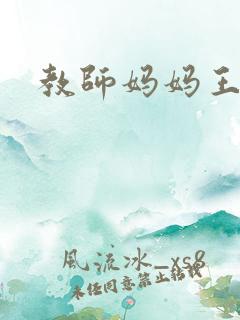 教師妈妈王
風流冰_xs8
未经同意禁止转载